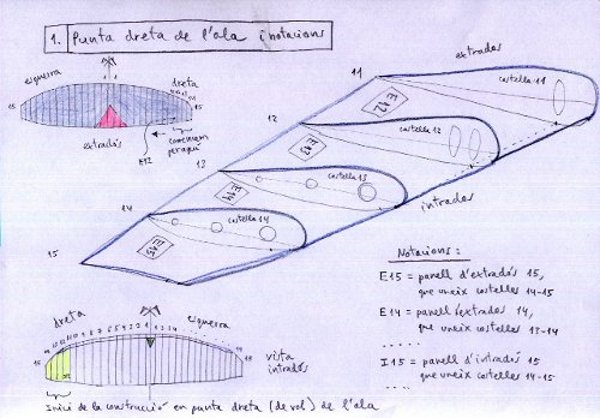 1. Punta dreta de l'ala i notacions
esquerra
dreta
15
1 1
15
extradós
E12
comencem
per aquí
extradós
11
costella 11
E12
12
costella 12
E13
13
costella 13
E14
14
costella 14
E15
15
intradós
Notacions :
E15 = panell d'extradós 15,
que uneix costelles 14-15
E14 = panell d'extradós 14,
que uneix costelles 13-14
.....
I15 = panell d'intradós 15
que uneix costelles 14-15
dreta
esquerra
15
1 1 2 3 4
15
vista
intradós
Inici de la construcció en punta dreta (de vol) de l'ala